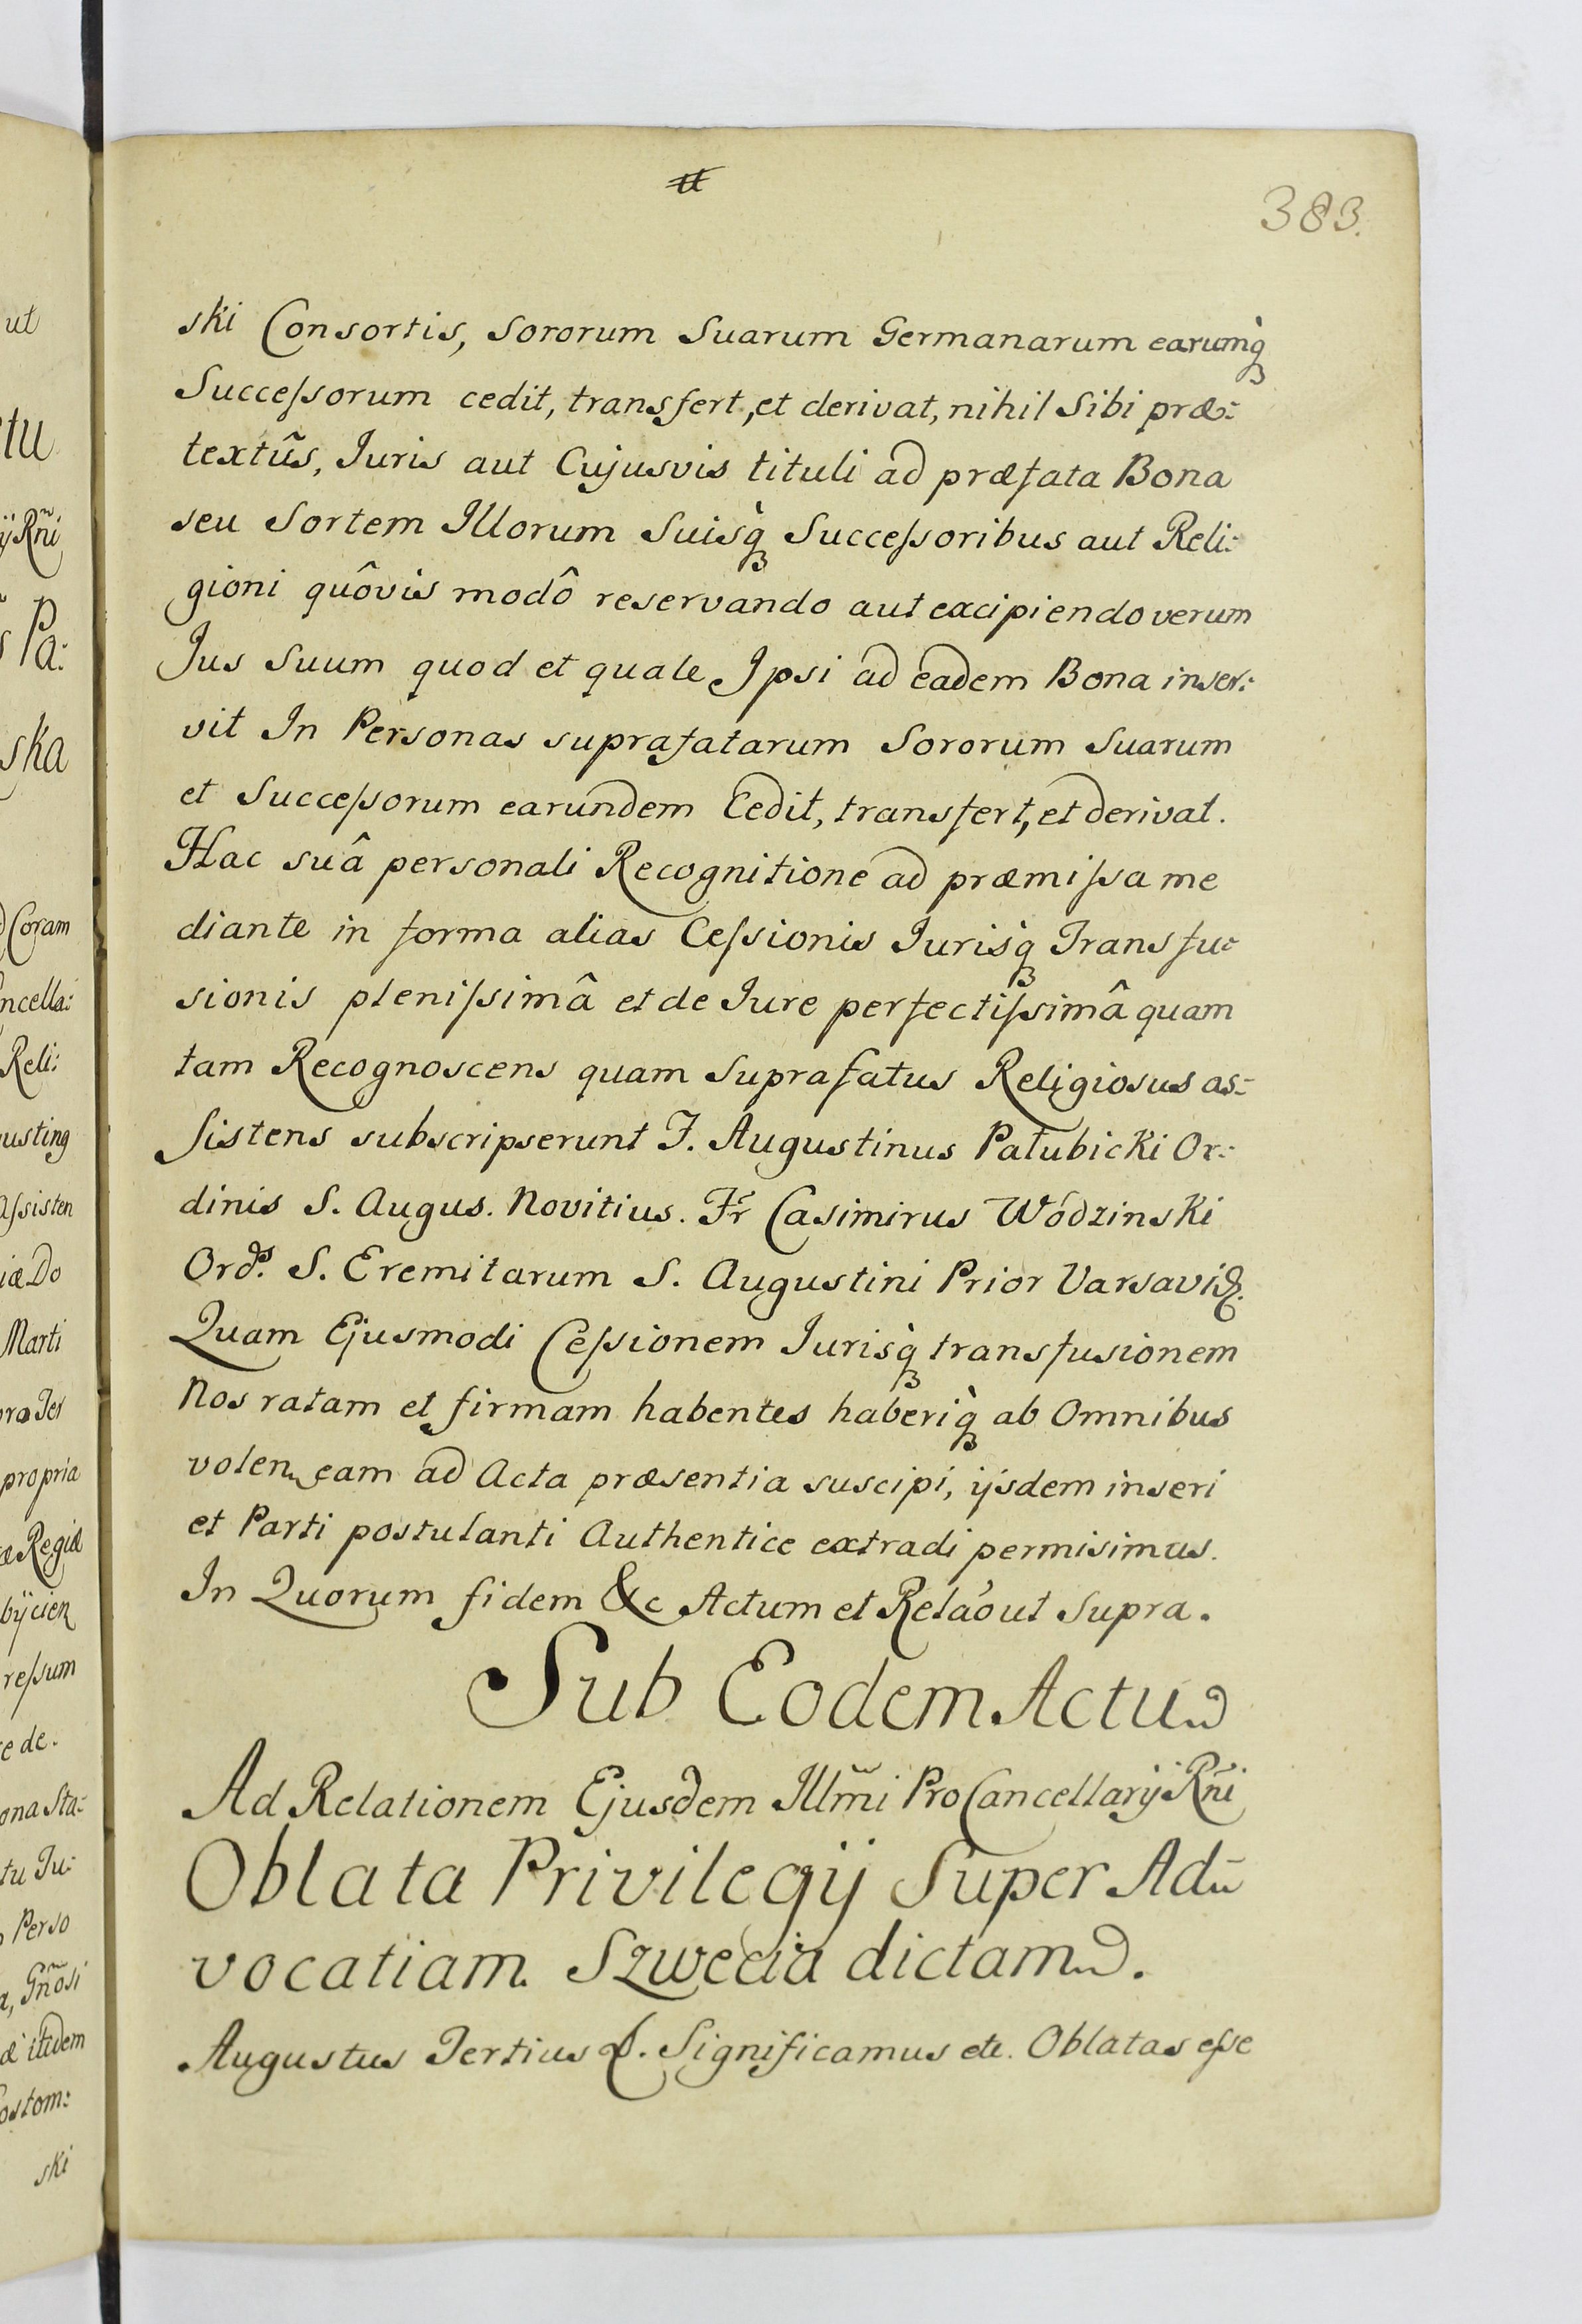 383.
ski Consortis, Sororum Suarum Germanarum earumq̀
Succeſsorum cedit, transfert, et derivat, nihil Sibi præ:
textûs, Juris aut Cujusvis tituli ad præfata Bona
seu Sortem Illorum Suisq̀ Succeſsoribus aut Reli:
gioni quôvis modô reservando aut excipiendo verum
Jus Suum quod et quale Ipsi ad eadem Bona inser:
vit In Personas suprafatarum Sororum Suarum
et Succeſsorum earundem Cedit, transfert, et derivat.
Hac suâ personali Recognitione ad præmiſsa me
diante in forma alias Ceſsionis Jurisq̀ Transfu:
sionis pleniſsimâ et de Jure perfectiſsimâ quam
tam Recognoscens quam Suprafatus Religiosus as:
sistens subscripserunt F. Augustinus Pałubicki Or:
dinis S. Augus. Novitius. Fr Casimirus Wódzinski
Ords. S. Eremitarum S. Augustini Prior Varsaviæ.
Quam Ejusmodi Ceſsionem Jurisq̀ transfusionem
Nos ratam et firmam habentes haberiq̀ ab Omnibus
volen eam ad Acta præsentia suscipi, ijsdem inseri
et Parti postulanti Authentice extradi permisimus.
In Quorum fidem &c Actum et Relão ut Supra.
Sub Eodem Actu
Ad Relationem Ejusdem Illm̃i ProCancellarij Rñi
Oblata Privilegij Super Ad:
vocatiam Szwecia dictam.
Augustus Tertius &. Significamus etc. Oblatas eſse
ut
tu
ij Rñi
Pa:
ska
Coram
ncella:
Reli:
usting
Aſsisten
iæ Do
Marti
pro Ter
propria
æ Regiæ
bÿcien
reſsum
e de.
ona Sta:
tu Ju:
Perso
a, Gñosi
æ itidem
ostom:
ski